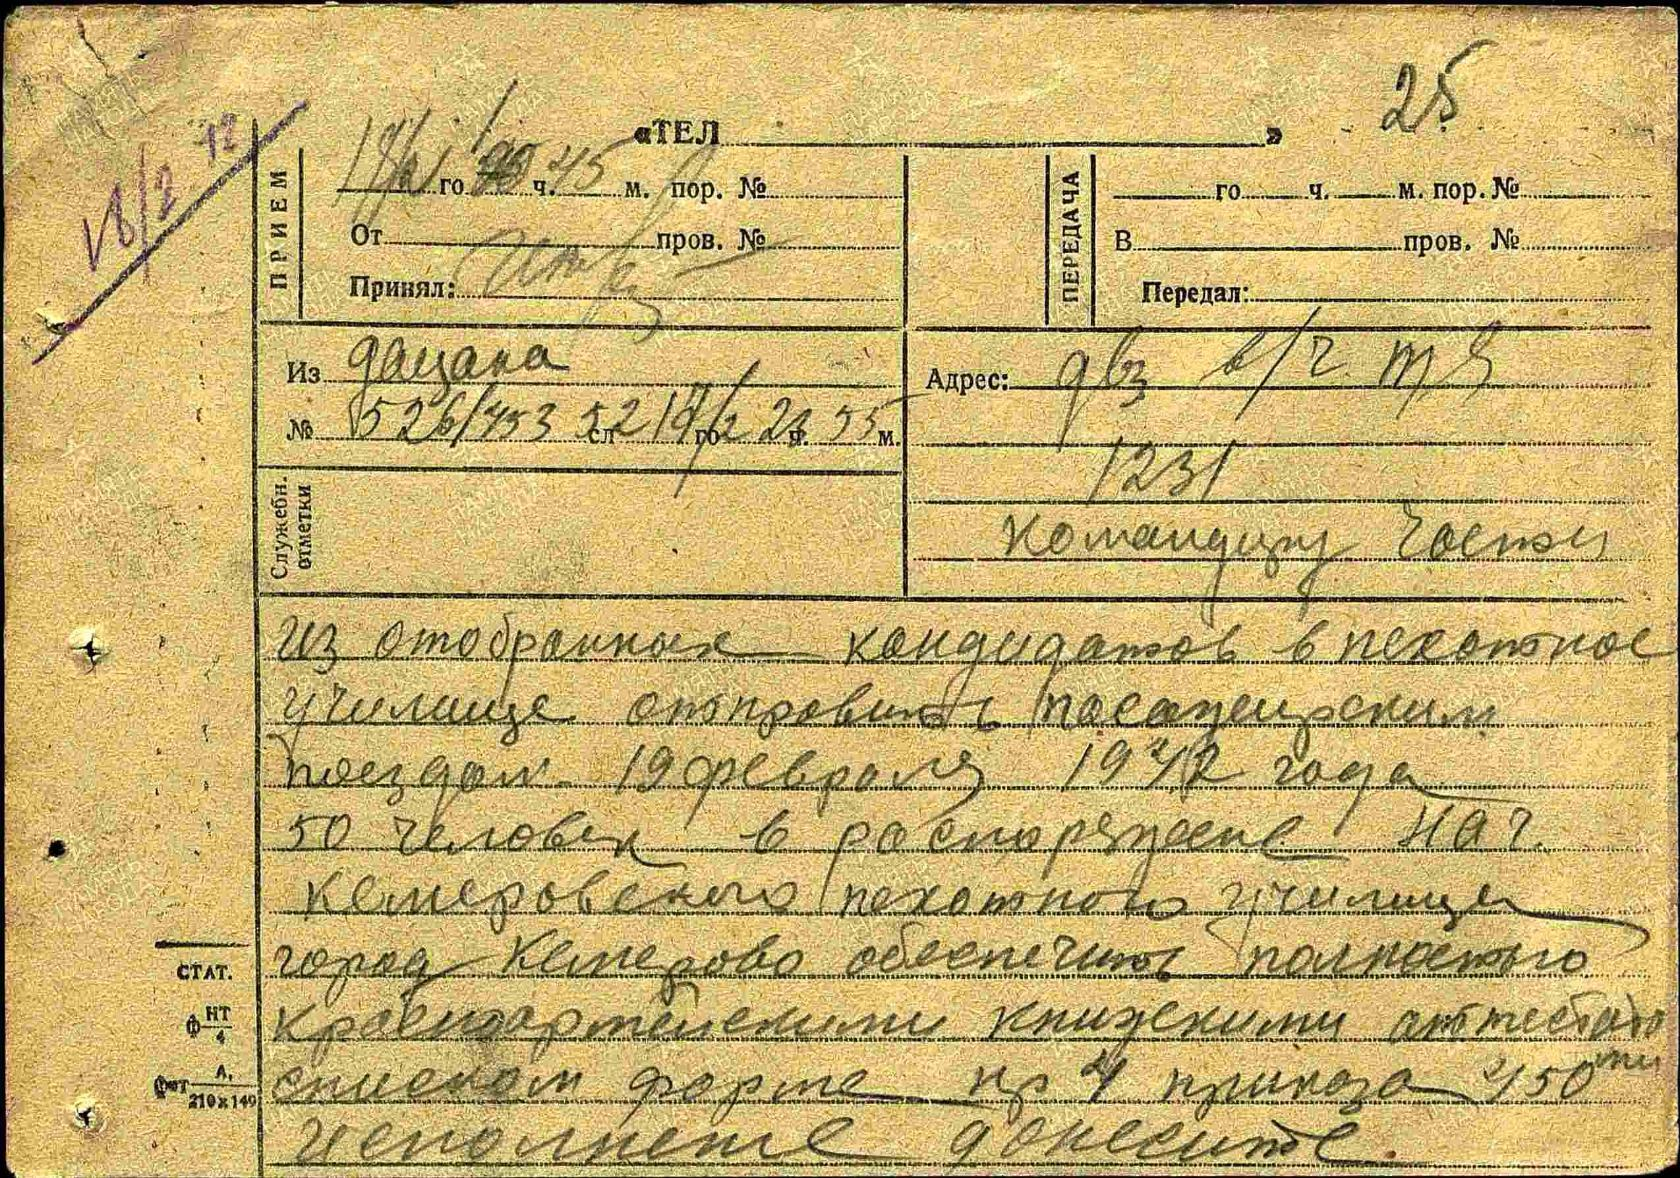 25
18/2 12
«ТЕЛ»
ПРИЕМ
18/2 го ч. 45 м. пор. №
От пров. №
Принял:
ПЕРЕДАЧА
го ч. м. пор. №
В пров. №
Передал:
Из дацана
№ 526/453 52 сл 17/2 го 23 ч. 55 м.
Служебн. отметки
Адрес: двз в/ч п/я
1231
командиру части
из отобранных кандидатов в пехотное
училище отправить пасажирским
поездом 19 февраля 1942 года
50 человек в распоряжение нач.
кемеровского пехотного училища
город Кемерово обеспечить полностью
красноармейскими книжками аттестатами
списком форме нр 4 приказа 450
исполнение донесите.
СТАТ.
ф НТ 4
фот А. 210х149